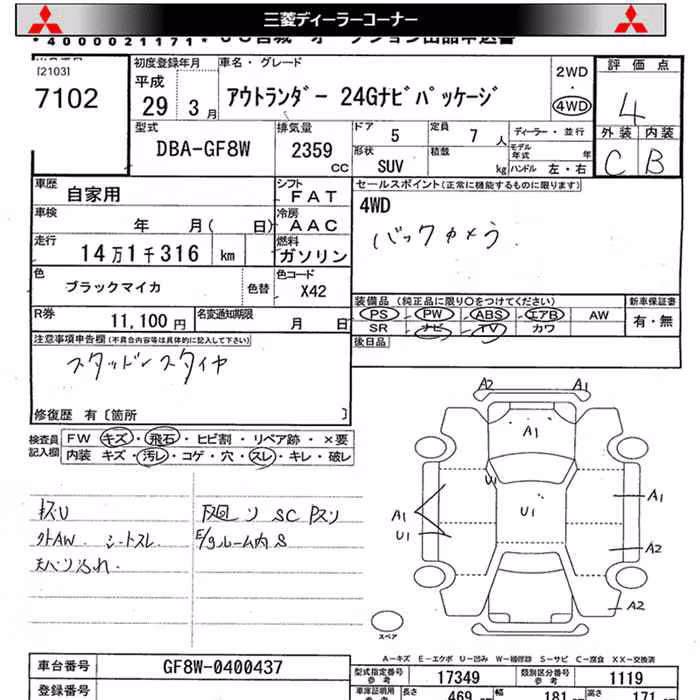 三菱ディーラーコーナー
*4000021171*
[2103]
7102
初度登録年月
平成
29 3 月
車名・グレード
アウトランダー 24Gナビパッケージ
2WD
・
4WD
評価点
4
外装 内装
C B
型式
DBA-GF8W
排気量
2359
CC
ドア
5
定員
7 人
形状
SUV
積載
kg
ディーラー・並行
モデル年式 年
ハンドル 左・右
車歴
自家用
シフト
FAT
車検
年 月( 日)
冷房
AAC
走行
14万1千316 km
燃料
ガソリン
色
ブラックマイカ
色替
色コード
X42
R券
11,100 円
名変通知期限
月 日
セールスポイント(正常に機能するものに限ります)
4WD
バックカメラ
装備品(純正品に限り○をつけてください)
PS PW ABS エアB AW
SR ナビ TV カワ
新車保証書
有・無
後日品
注意事項申告欄(不具合内容等は具体的に記入して下さい)
スタッドレスタイヤ
修復歴 有[箇所 ]
検査員
記入欄
FW キズ・飛石・ヒビ割・リペア跡・×要
内装 キズ・汚レ・コゲ・穴・スレ・キレ・破レ
キズU
外AW. シートスレ
天ハリ汚れ.
下廻リ SC Pスリ
E/gルーム内S
A2 A1
A1
U1
U1
A1
U1
A1
A2
A2
スペア
A-キズ E-エクボ U-凹み W-補修跡 S-サビ C-腐食 XX-交換済
車台番号
GF8W-0400437
登録番号
型式指定番号
参考
17349
類別区分番号
参考
1119
車庫証明用
参考
長さ 469 cm
幅 181 cm
高さ 171